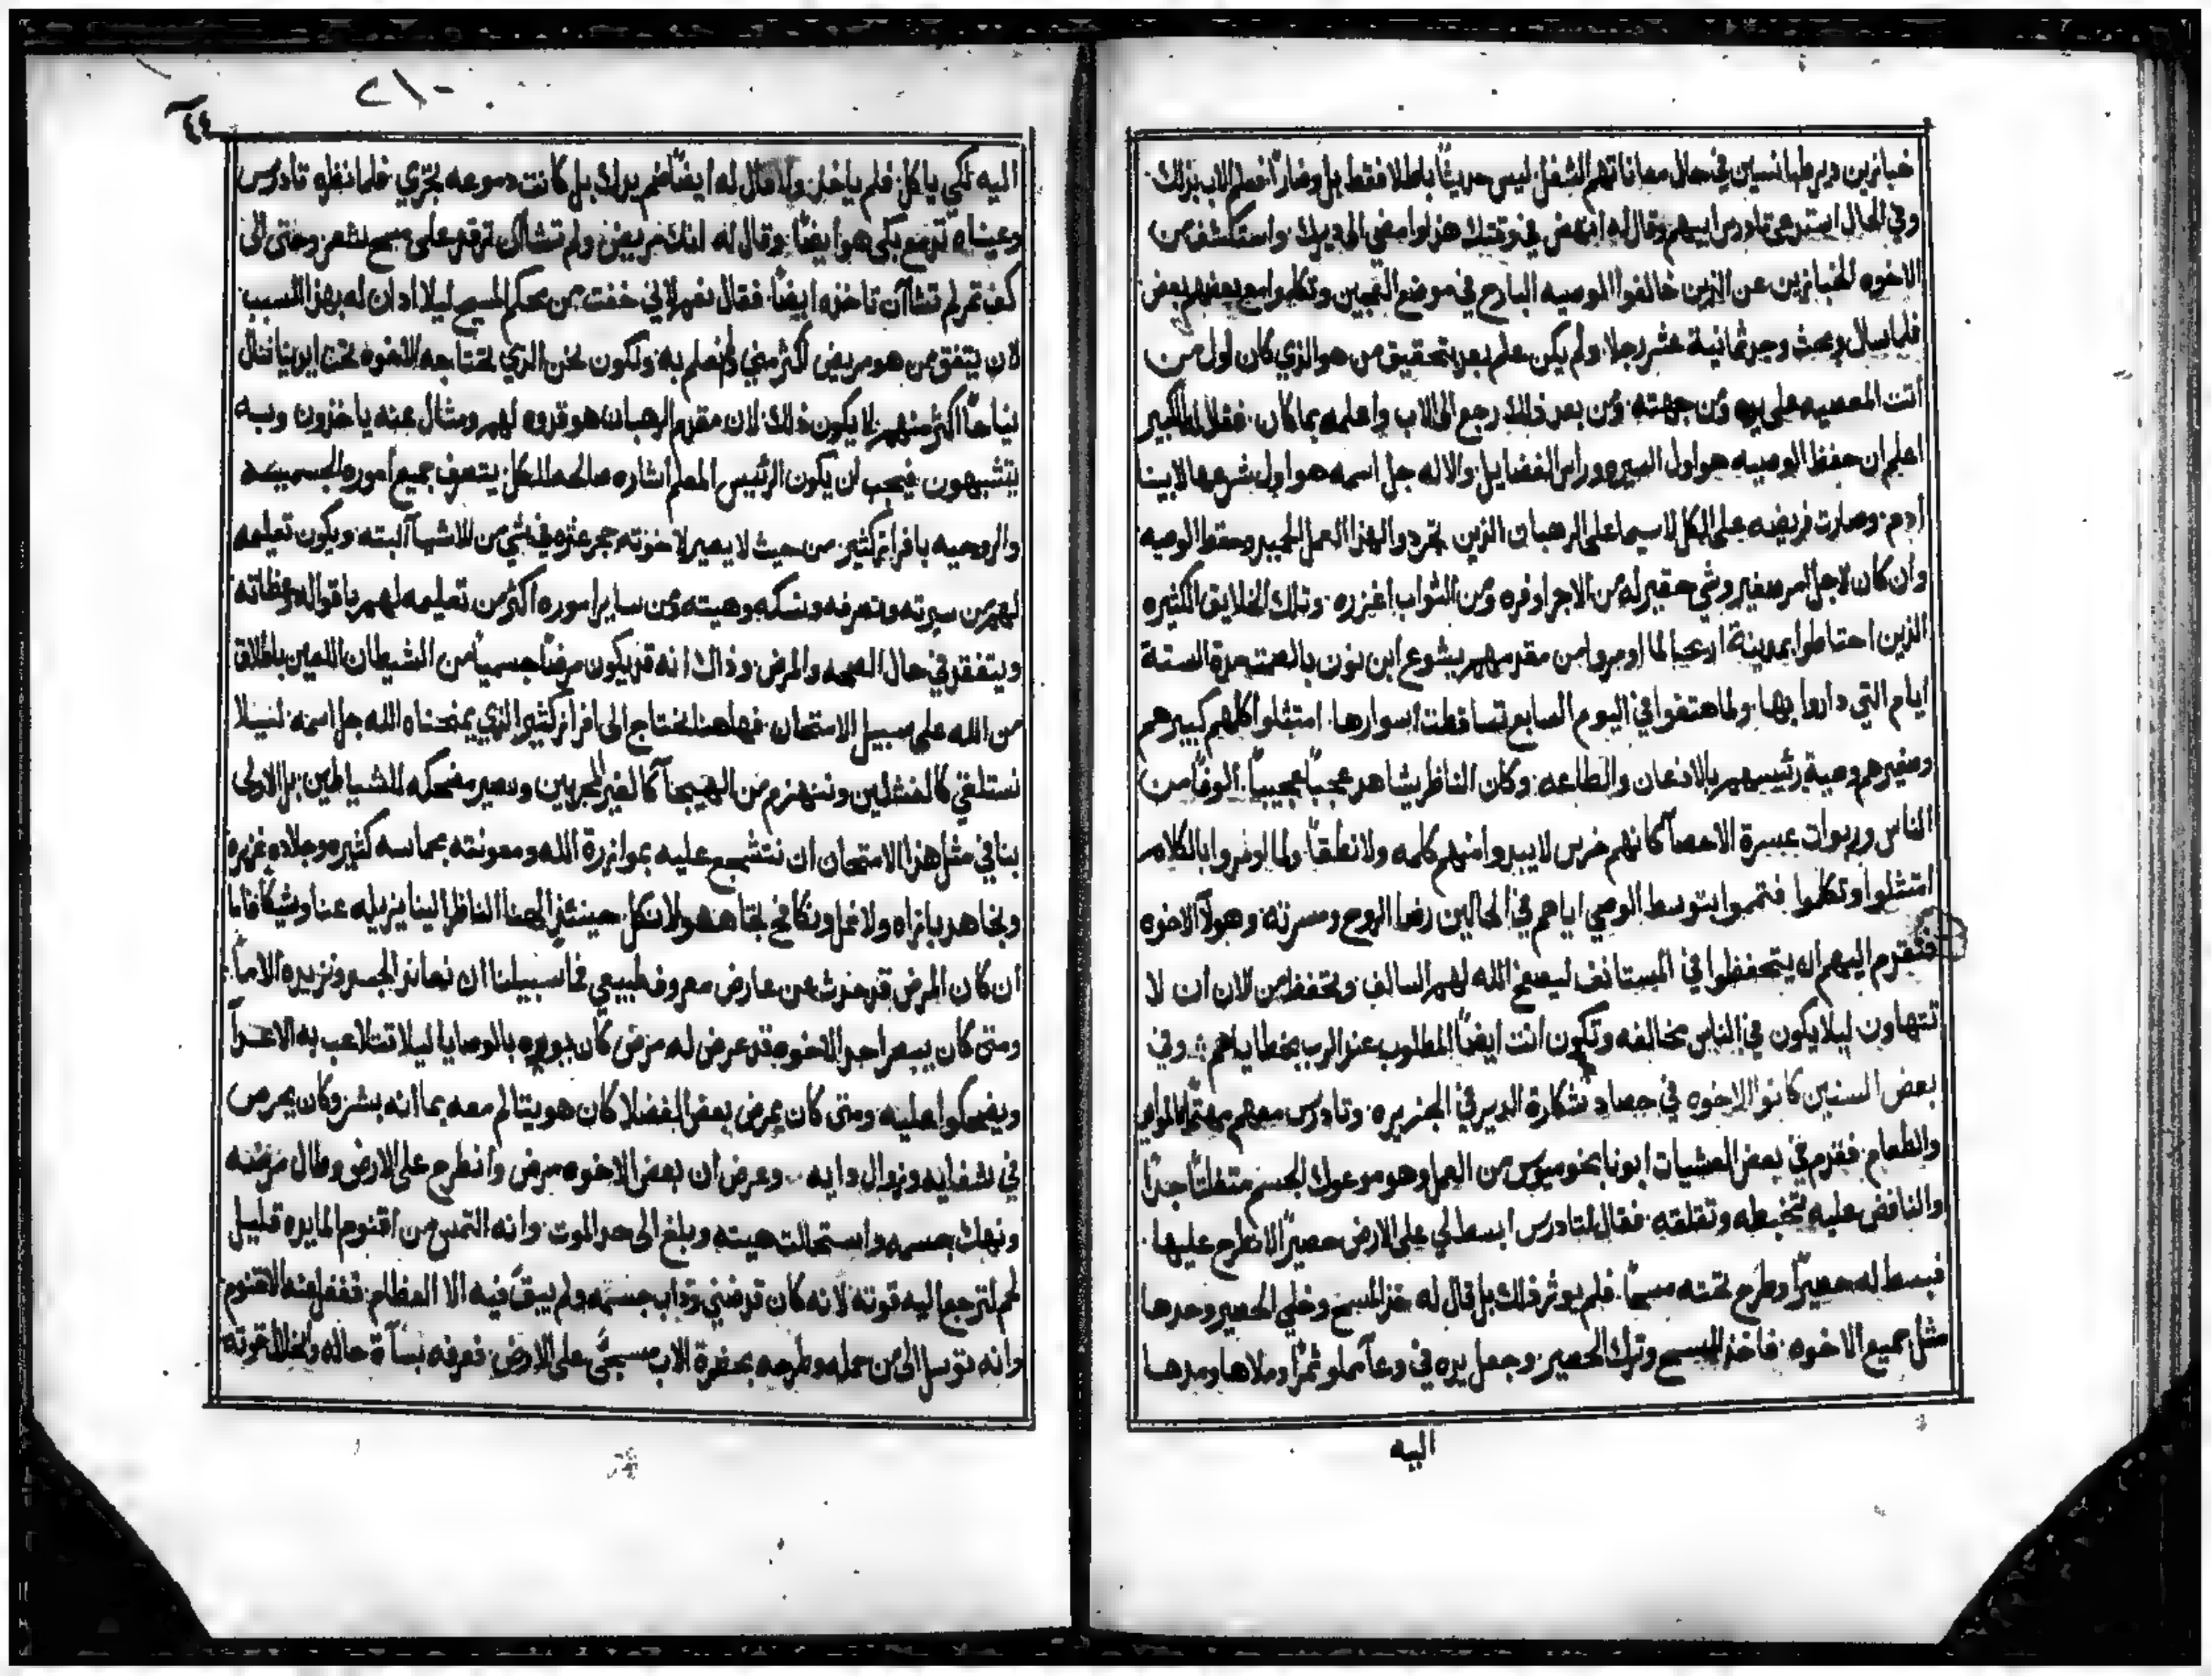 خبازين دير طبانسين في حال معاناتهم الشغل ليس حديثًا باطلا فقط بل وضارًا فعلم الاب بذلك
وفي الحال استدعى تادرس اليه وقال له انهض في وقتك هذا وامضي الى ديرك واستكشف من
الاخوه الخبازين عن الذين خالفوا الوصيه البارح في موضع العجين وتكلموا مع بعضهم بعض
فلما سال وبحث وجد ثمانية عشر رجلا ولم يكن علم بعد بتحقيق من هو الذي كان اول من
اتت المعصيه على يده ومن جهته ومن بعد ذلك رجع الى الاب واعلمه بما كان فقال له الكبير
اعلم ان حفظ الوصيه هو اول السيره وراس الفضايل والاله جل اسمه هو اول شرعها لابينا
ادم وصارت فريضه على الكل لاسيما على الرهبان الذين تجردوا لهذا العمل المجيد وحفظ الوصيه
وان كان لاجل امر صغير وشي حقير له من الاجر اوفره ومن الثواب اغزره وتلك الخلايق الكثيره
الذين احتاطوا بمدينة اريحا لما اومروا من مقدمهم يشوع ابن نون بالصمت مدة الستة
ايام التي داروا بها ولما هتفوا في اليوم السابع تساقطت اسوارها امتثلوا كلهم كبيرهم
وصغيرهم وصية رئيسهم بالاذعان والطاعه وكان الناظر يشاهد عجبًا عجيبًا الوفًا من
الناس وربوات عسرة الاحصا كانهم خرس لا يبدوا منهم كلمه ولا نطقًا ولما اومروا بالكلام
امتثلوا وتكلموا فتمموا بتوسط الوصي اياهم في الحالين رضا الروح ومسرته وهولا الاخوه
فتقدم اليهم ان يتحفظوا في المستانف ليصفح الله لهم السالف وتحفظ من الان ان لا
تتهاون ليلا يكون في الناس مخالفه وتكون انت ايضًا المطلوب عند الرب بخطاياهم وفي
بعض السنين كانوا الاخوه في حصاد شكارة الدير في الجزيره وتادرس معهم مهتمًا بالموايد
والطعام فقدم في بعض العشيات ابونا بخوميوس من العمل وهو موعوك الجسم متفلتًا جدًا
والنافض عليه لتخبطه وتقلقه فقال لتادرس ابسط لي على الارض حصيرًا لانطرح عليها
فبسط له حصيرًا وطرح تحته مسحًا فلم يوثر ذلك بل قال له خذ المسح وخلي الحصير وحدها
مثل جميع الاخوه فاخذ المسح وترك الحصير وجعل يده في وعا مملو تمرًا وملاها ومدها
اليه
٢١٠
٤٤
اليه لكي ياكل فلم ياخذ ولا قال له ايضًا ضم يدك بل كانت دموعه تجري فلما نظره تادرس
وعيناه تدمع بكى هو ايضًا وقال له انك مريض ولم تشا ان ترقد على مسح شعر وحتى الى
كف تمر لم تشا ان تاخذه ايضًا فقال نعم لاني خفت من حكم المسيح ليلا ادان له بهذا السبب
لان يتفق من هو مريض اكثر مني ولم نعلم به ولكون نحن الذي تحتاجه الاخوه تحت ايدينا ننال
نياحًا اكثر منهم لا يكون ذلك لان مقدم الرهبان هو قدوه لهم ومثال عنه ياخذون وبه
يتشبهون فيجب ان يكون الرئيس المعلم اشاره صالحه للكل يتصرف جميع اموره الجسميه
والروحيه بافراز كثير من حيث لا يصير لاخوته حجر عثره في شي من الاشيا البته ويكون تعليمه
لهم من سيرته وتصرفه وشكه وهيته ومن ساير اموره اكثر من تعليمه لهم باقواله وعظاته
ويتفقد في حال الصحه والمرض وذاك انه قد يكون مرضًا جسميًا من الشيطان اللعين باطلاق
من الله على سبيل الامتحان فهاهنا نحتاج الى افراز كثير الذي يمنحناه الله جل اسمه ليلا
نستلقي كالفشلين وننهزم من الهيجا كالغير المجربين ونصير مضحكه للشياطين بل الاولى
بنا في مثل هذا الامتحان ان نتشجع عليه بموازرة الله ومعونته بحماسه كثيره وجلاده غزيره
ونجاهد بازاه ولا نمل ونكافح تجاهه ولا نكل حينئذ الهنا الناظر الينا يزيله عنا وشيكًا فاما
ان كان المرض قد حدث عن عارض معروف طبيعي فما سبيلنا ان نعاند الجسد ونزيده الامًا
ومتى كان يبصر احد الاخوه قد عرض له مرض كان يويده بالوصايا ليلا تتلاعب به الاعدا
ويضحكوا عليه ومتى كان يمرض بعض الفضلا كان هو يتالم معه بما انه بشر وكان يحرص
في شفايه وزوال دايه وعرض ان بعض الاخوه مرض وانطرح على الارض وطال مرضه
ونهك جسمه واستحالت هيته وبلغ الى حد الموت وانه التمس من اقنوم المايده قليل
لحم لترجع اليه قوته لانه كان قد ضني وذاب جسمه ولم يبق فيه الا العظام فغفل عنه الاقنوم
وانه توسل الى من حمله وطرحه بحضرة الاب مسجى على الارض فعرفه بسآة حاله وانحلال قوته